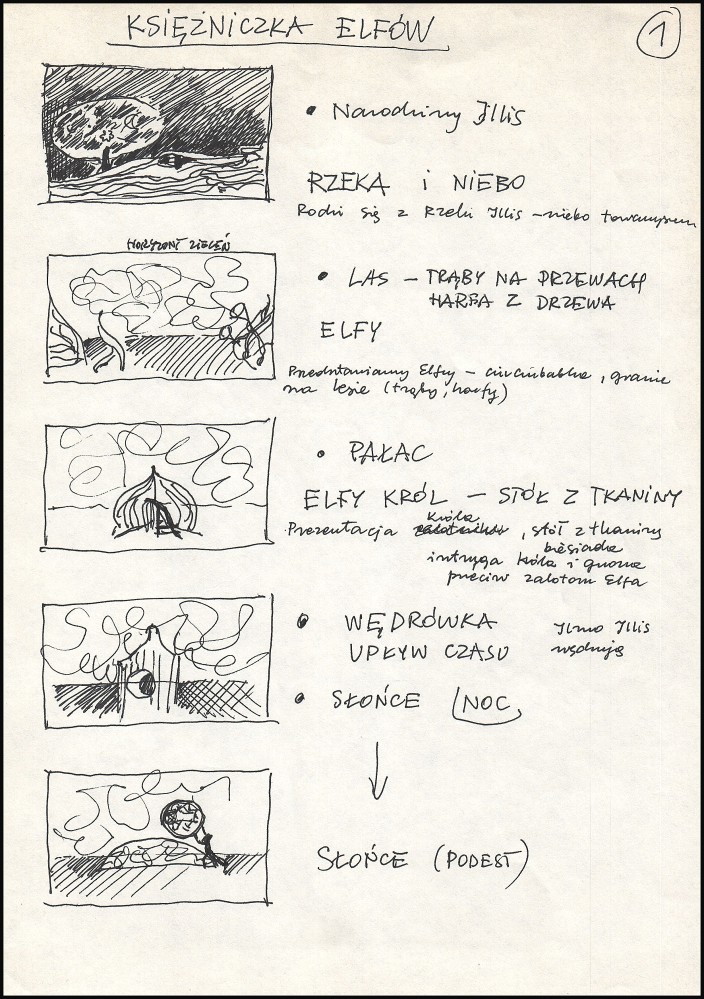 KSIĘŻNICZKA ELFÓW
1
• Narodziny Illis
RZEKA i NIEBO
Rodzi się z Rzeki Illis – niebo towarzyszem
HORYZONT ZIELEŃ
• LAS – TRĄBY NA DRZEWACH
HARFA Z DRZEWA
ELFY
Przedstawiamy Elfy – ciuciubabka, granie
na lesie (trąby, harfy)
• PAŁAC
ELFY KRÓL – STÓŁ Z TKANINY
Króla
Prezentacja , stół z tkaniny
biesiada
intryga króla i gnoma
przeciw zalotom Elfa
• WĘDRÓWKA
Ilmo Illis
UPŁYW CZASU
wędrują
• SŁOŃCE NOC
SŁOŃCE (PODEST)